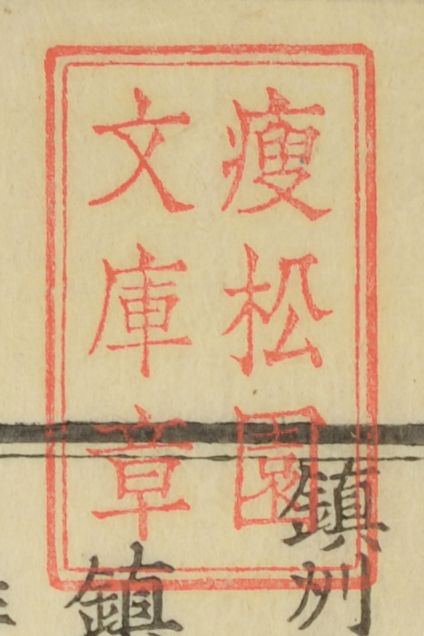 瘦松園
文庫章
鎮洲
鎮